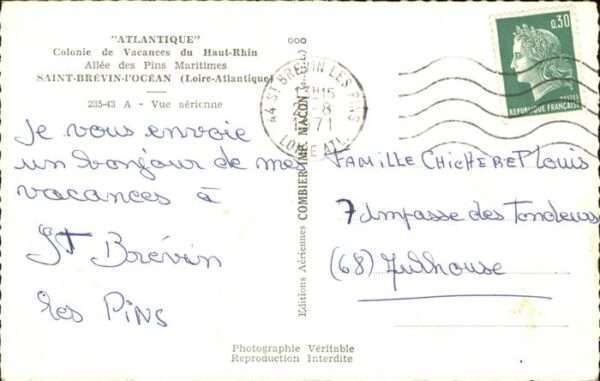 "ATLANTIQUE"
Colonie de Vacances du Haut-Rhin
Allée des Pins Maritimes
SAINT-BRÉVIN-l'OCÉAN (Loire-Atlantique)
235-43 A - Vue aérienne
Je vous envoie
un bonjour de mes
vacances à
St Brévin
les PiNS
44 ST BREVIN LES PINS
1971
LOIRE ATL.
Editions Aériennes COMBIER IMP. MACON
0,30
REPUBLIQUE FRANÇAISE
FAMILLE CHICHERET Louis
7 Impasse des Tondeurs
(68) Mulhouse
Photographie Véritable
Reproduction Interdite